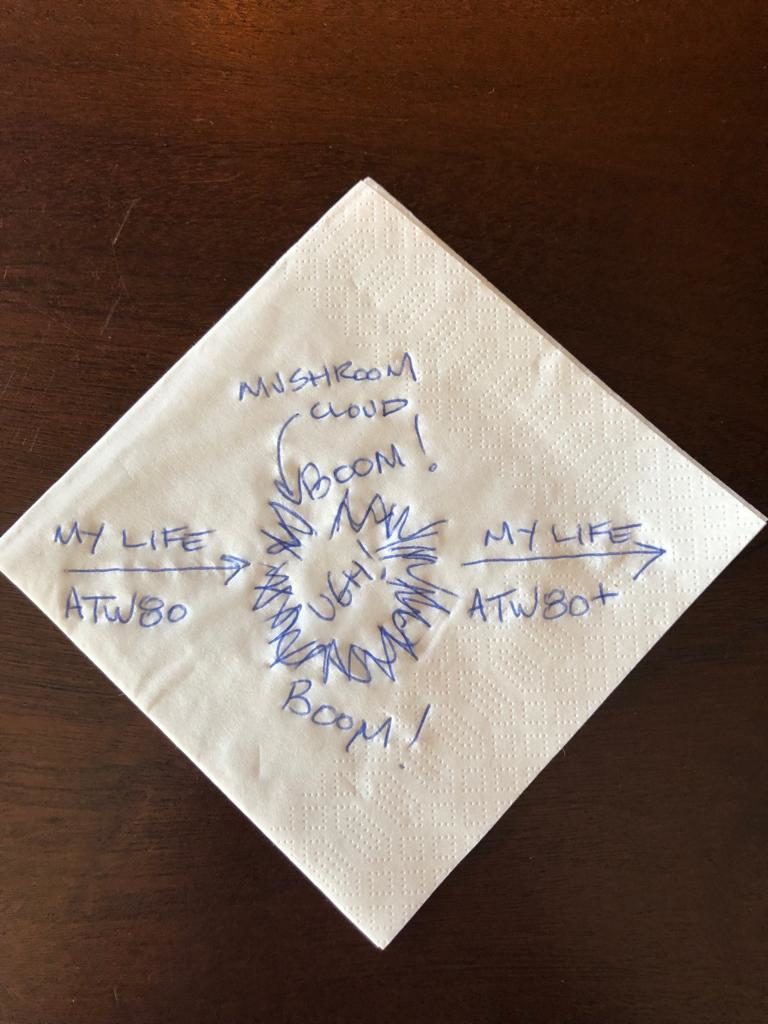 MUSHROOM
CLOUD
BOOM!
MY LIFE
ATW80
UGH!
MY LIFE
ATW80+
BOOM!